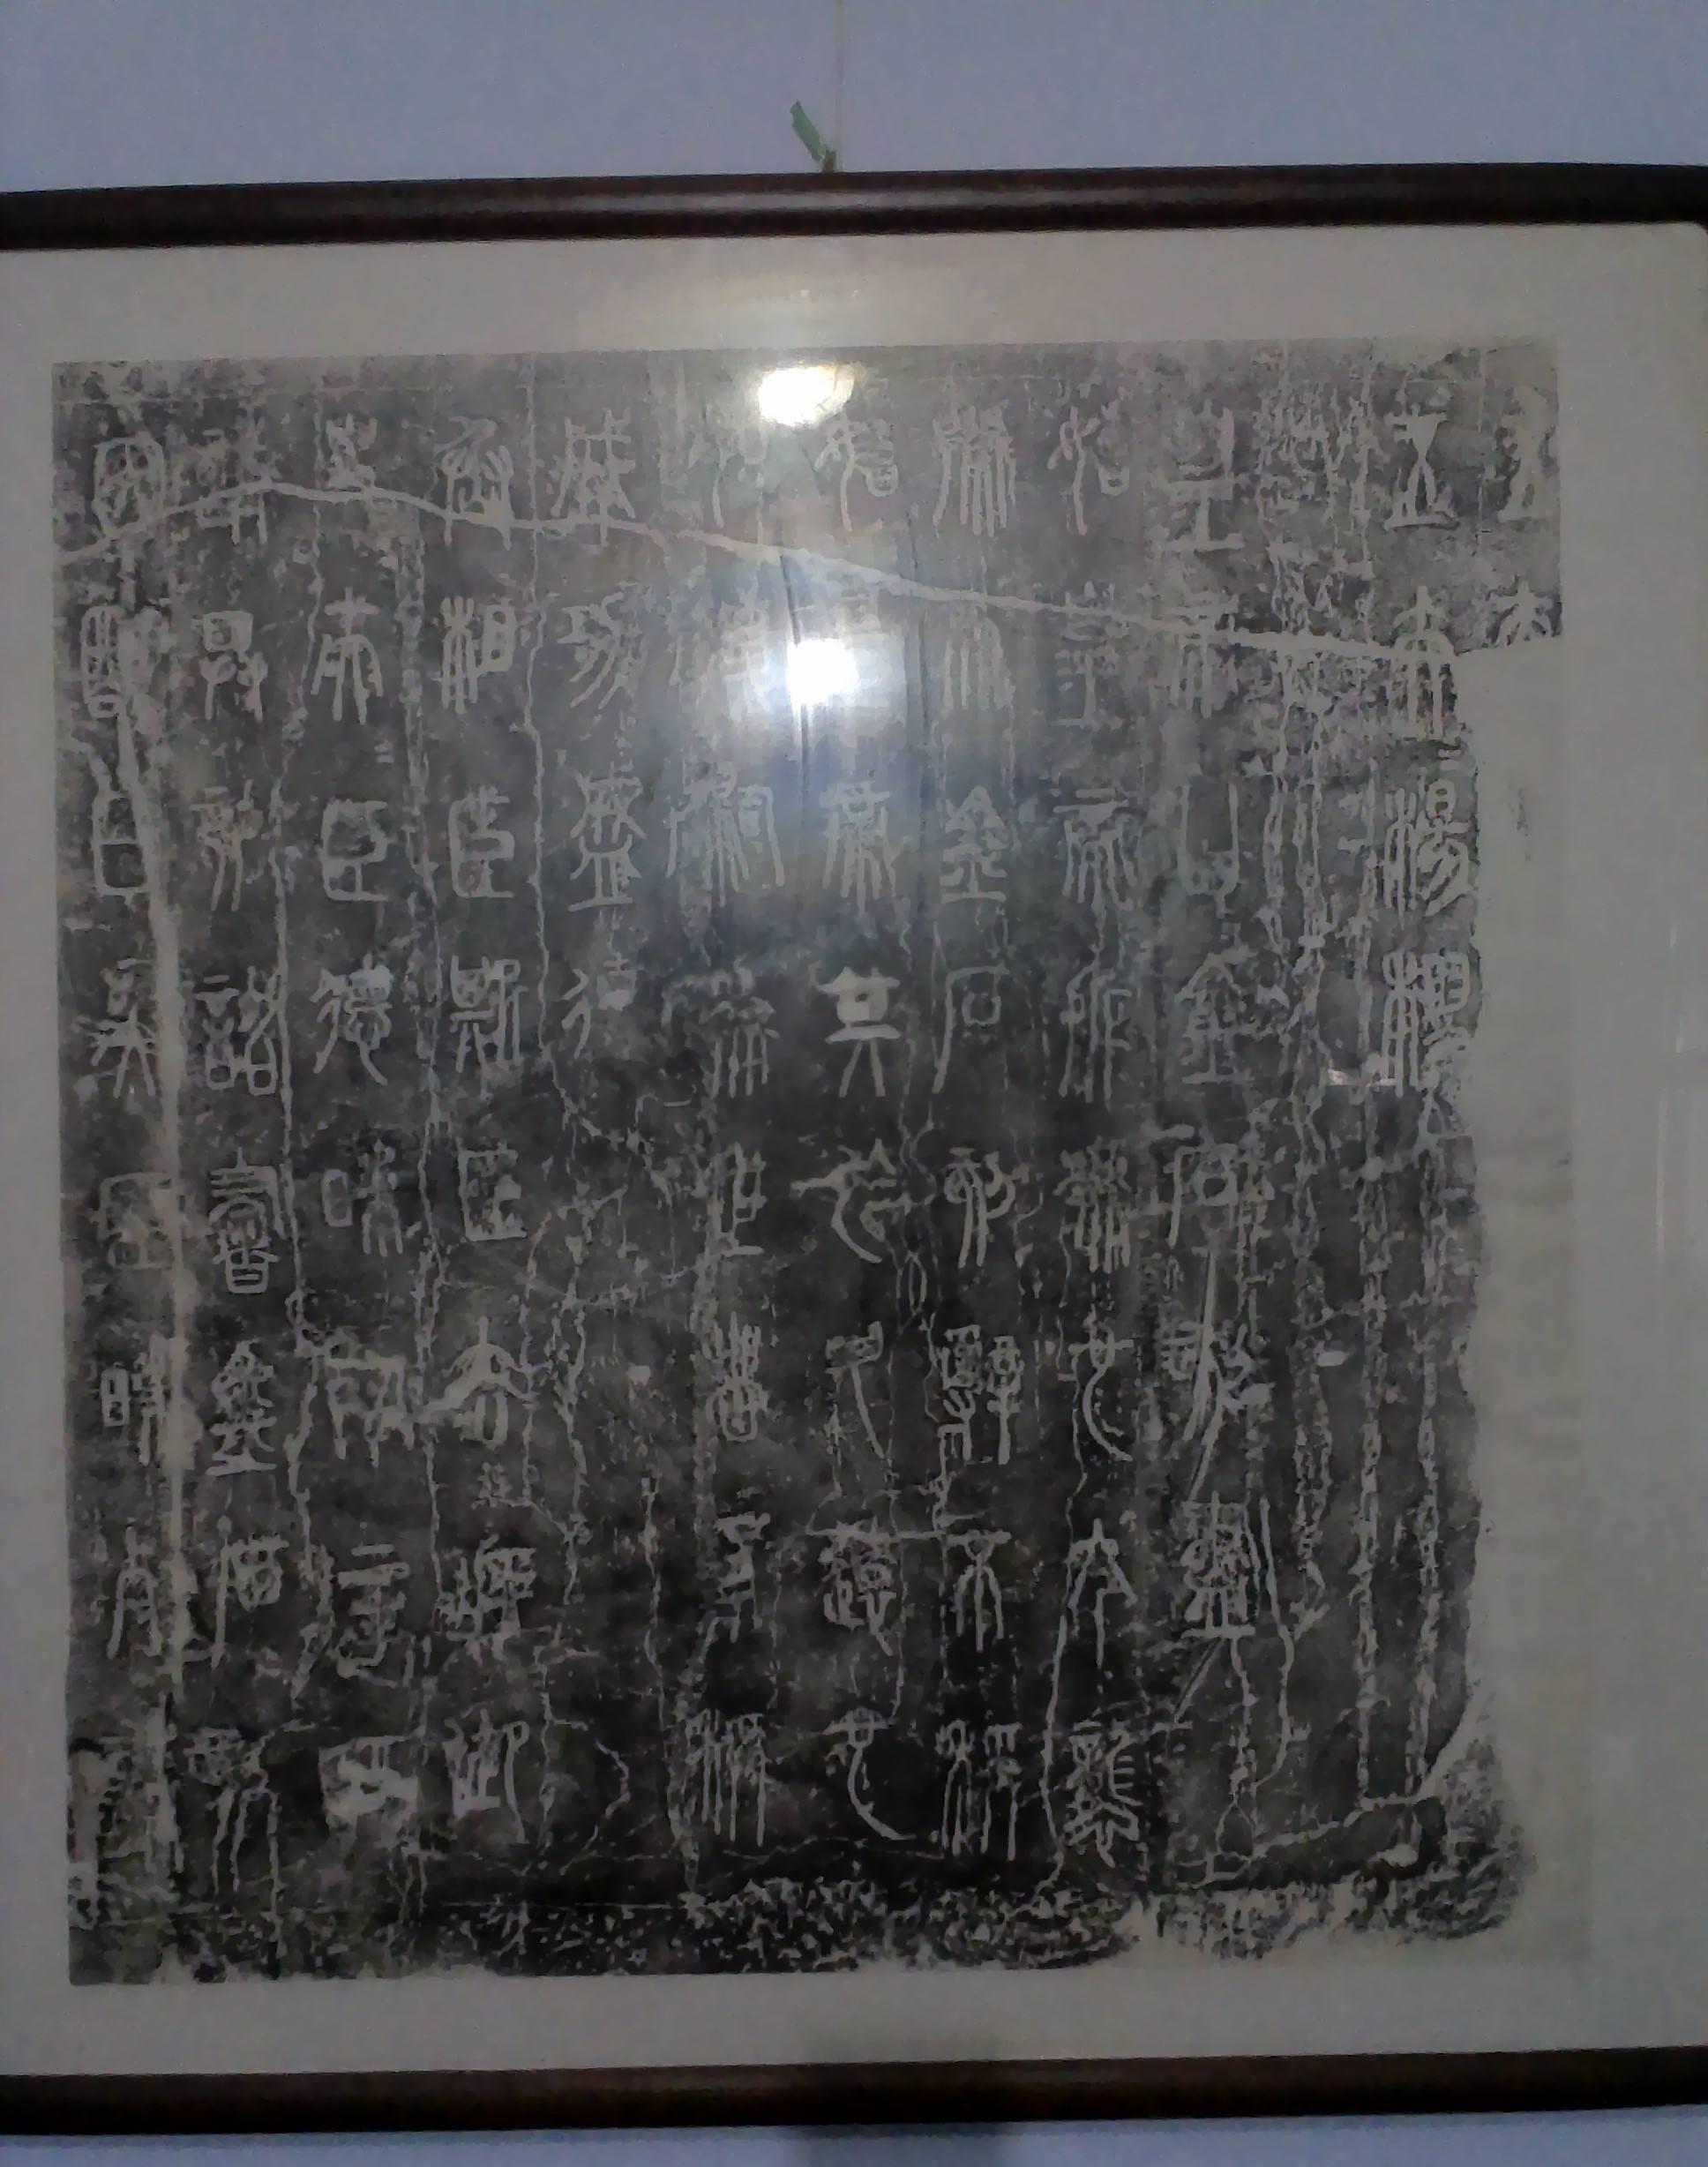 五夫
五夫=楊樛
皇帝曰金石刻盡
始皇帝所為也今襲
號而金石刻辭不稱
始皇帝其於久遠也
如後嗣為之者不稱
成功盛德
丞相臣斯臣去疾御
史夫=臣德昧死言臣
請具刻詔書金石刻
因明白矣臣昧死請